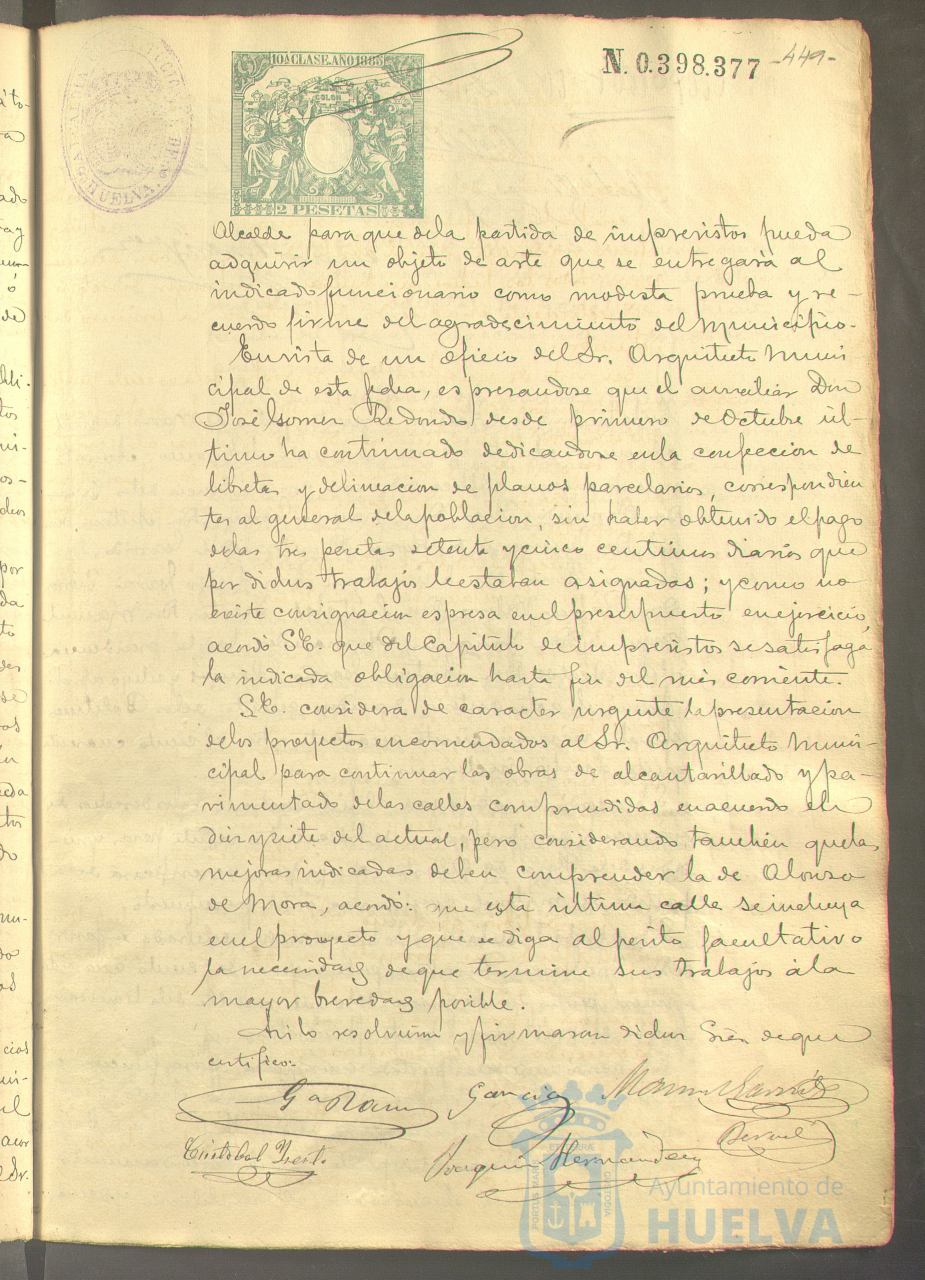 10ª CLASE. AÑO 1885
COLON
2 PESETAS
N. 0.398.377
-449-
HUELVA
Alcalde para que dela partida de imprevistos pueda
adquirir un objeto de arte que se entregará al
indicado funcionario como modesta prueba y re-
cuerdo firme del agradecimiento del Municipio.
En vista de un oficio del Sr. Arquitecto Muni
cipal de esta fecha, espresandose que el auxiliar Don
José Gomez Redondo desde primero de Octubre úl-
timo ha continuado dedicandose enla confeccion de
libretas y delineacion de planos parcelarios, correspondien
tes al general dela poblacion, sin haber obtenido el pago
delas tres pesetas setenta y cinco centimos diarios que
por dichos trabajos le estaban asignadas; y como no
existe consignacion espresa en el presupuesto en ejercicio,
acordó S.E. que del Capitulo de imprevistos se satisfaga
la indicada obligacion hasta fin del mes corriente.
S.E. considera de caracter urgente la presentacion
delos proyectos encomendados al Sr. Arquitecto Muni-
cipal para continuar las obras de alcantarillado y pa-
vimentado delas calles comprendidas en acuerdo del
diez y siete del actual, pero considerando tambien que las
mejoras indicadas deben comprender la de Alonso
de Mora, acordó: que esta última calle se incluya
en el proyecto y que se diga al perito facultativo
la necesidad de que termine sus trabajos á la
mayor brevedad posible.
Asi lo resolvieron y firmaran dichos Sres. de que
certifico:
García
Manuel
Joaquin Hernandez
Cristobal
PORTUS MARIS
CUSTODIA
Ayuntamiento de
HUELVA